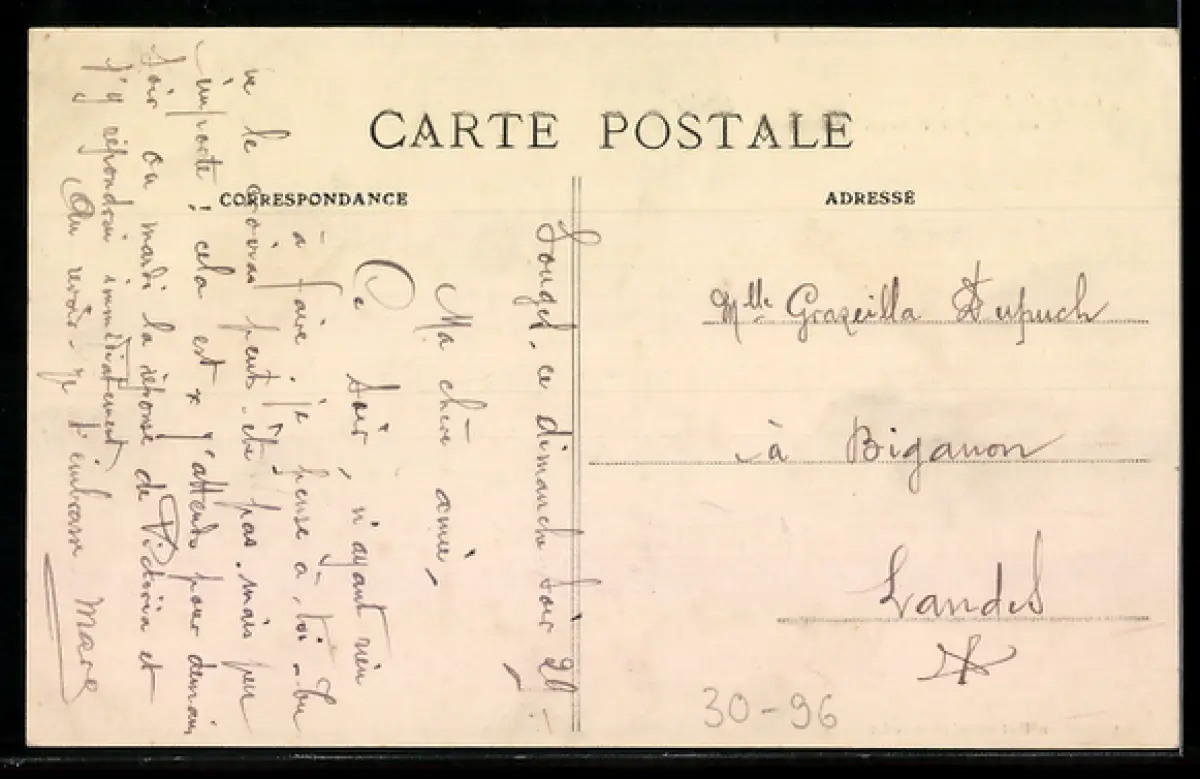 CARTE POSTALE
CORRESPONDANCE
ADRESSE
ce dimanche soir 20 -
Ma chère amie,
Ce soir, n'ayant rien
à faire, je pense à toi - tu
ne le croiras peut-être pas. mais peu
importe ; cela est x J'attends pour demain
soir ou mardi la réponse de Victoria et
j'y répondrai immédiatement
Au revoir - Je t'embrasse
Mlle Grazeilla Dupuch
à Biganon
Landes
30-96